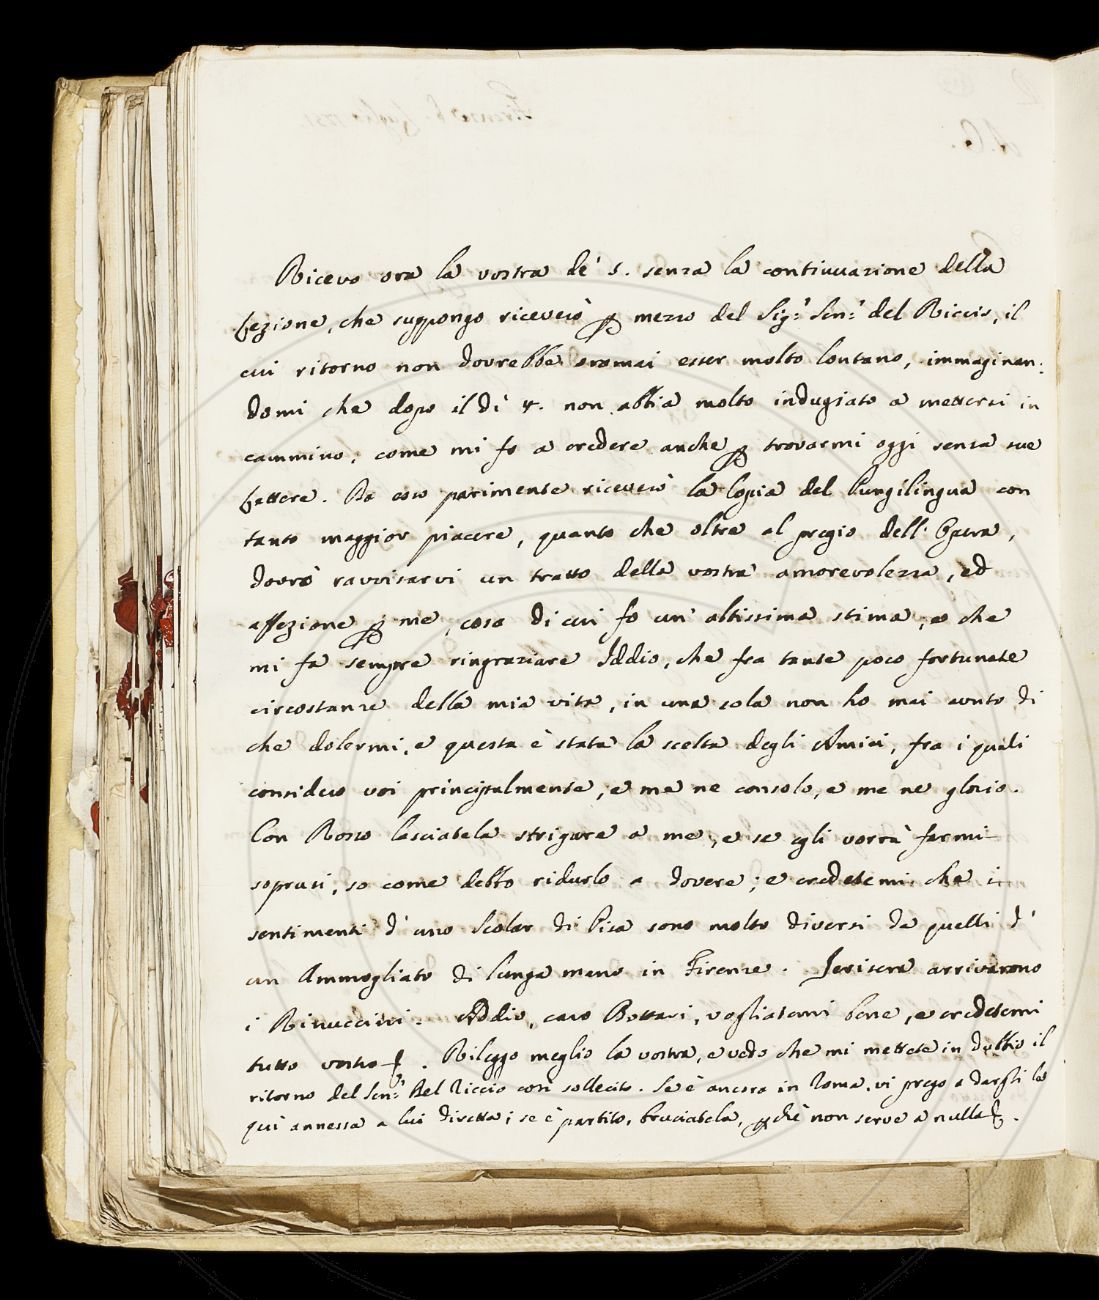 Ricevo ora la vostra de' 5. senza la continuazione della
Lezione, che suppongo riceverò p mezzo del Sig.r Sen.r del Riccio, il
cui ritorno non dovrebbe oramai esser molto lontano, immaginan:
domi che dopo il dì 4. non abbia molto indugiato a mettersi in
cammino, come mi fo a credere anche p trovarmi oggi senza sue
Lettere. Da esso parimente riceverò la Copia del Lungilingua con
tanto maggior piacere, quanto che oltre al pregio dell'Opera,
dovrò ravvisarvi un tratto della vostra amorevolezza, ed
affezione p me, cosa di cui fo un'altissima stima, e che
mi fa sempre ringraziare Iddio, che fra tante poco fortunate
circostanze della mia vita, in una sola non ho mai avuto di
che dolermi, e questa è stata la scelta degli Amici, fra i quali
considero voi principalmente, e me ne consolo, e me ne glorio.
Con Rosso lasciatela strigare a me, e se egli vorrà farmi
soprusi, so come debbo ridurlo a dovere; e credetemi che i
sentimenti d'uno Scolar di Pisa sono molto diversi da quelli d'
un Ammogliato di lunga mano in Firenze. Jersera arrivarono
i Rinuccini. Addio, caro Bottari, vogliatemi bene, e credetemi
tutto vostro. Rileggo meglio la vostra, e vedo che mi mettete in dubbio il
ritorno del Sen.r Del Riccio così sollecito. Se è ancora in Roma, vi prego a dargli la
quì annessa a lui diretta; se è partito, bruciatela, pchè non serve a nulla.